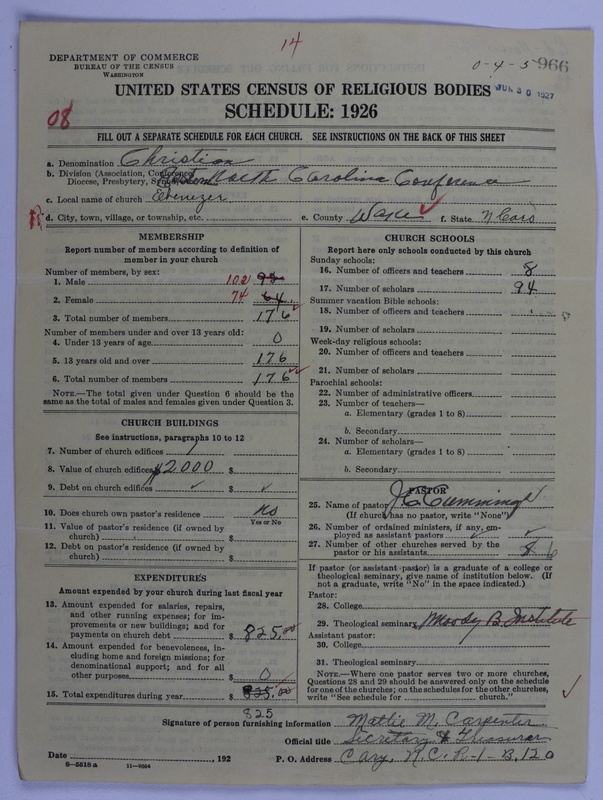 14
DEPARTMENT OF COMMERCE
BUREAU OF THE CENSUS
WASHINGTON
0-4-5 966
UNITED STATES CENSUS OF RELIGIOUS BODIES
JUN 30 1927
SCHEDULE: 1926
08
FILL OUT A SEPARATE SCHEDULE FOR EACH CHURCH. SEE INSTRUCTIONS ON THE BACK OF THIS SHEET
a. Denomination Christian
b. Division (Association, Conference, Diocese, Presbytery, North Carolina Conference
c. Local name of church Ebenezer
d. City, town, village, or township, etc. e. County Wake f. State N Caro
MEMBERSHIP
Report number of members according to definition of
member in your church
Number of members, by sex:
1. Male 102
2. Female 74 64
3. Total number of members 176
Number of members under and over 13 years old:
4. Under 13 years of age 0
5. 13 years old and over 176
6. Total number of members 176
NOTE.—The total given under Question 6 should be the
same as the total of males and females given under Question 3.
CHURCH BUILDINGS
See instructions, paragraphs 10 to 12
7. Number of church edifices 1
8. Value of church edifices $2000 $
9. Debt on church edifices $
10. Does church own pastor's residence No
Yes or No
11. Value of pastor's residence (if owned by
church) $
12. Debt on pastor's residence (if owned by
church) $
EXPENDITURES
Amount expended by your church during last fiscal year
13. Amount expended for salaries, repairs,
and other running expenses; for im-
provements or new buildings; and for
payments on church debt $ 825.00
14. Amount expended for benevolences, in-
cluding home and foreign missions; for
denominational support; and for all
other purposes $ 0
15. Total expenditures during year $ 835.00
825
CHURCH SCHOOLS
Report here only schools conducted by this church
Sunday schools:
16. Number of officers and teachers 8
17. Number of scholars 94
Summer vacation Bible schools:
18. Number of officers and teachers
19. Number of scholars
Week-day religious schools:
20. Number of officers and teachers
21. Number of scholars
Parochial schools:
22. Number of administrative officers
23. Number of teachers—
a. Elementary (grades 1 to 8)
b. Secondary
24. Number of scholars—
a. Elementary (grades 1 to 8)
b. Secondary
PASTOR
25. Name of pastor Cummings
(If church has no pastor, write "None")
26. Number of ordained ministers, if any, em-
ployed as assistant pastors
27. Number of other churches served by the
pastor or his assistants 6
If pastor (or assistant pastor) is a graduate of a college or
theological seminary, give name of institution below. (If
not a graduate, write "No" in the space indicated.)
Pastor:
28. College
29. Theological seminary Moody B. Institute
Assistant pastor:
30. College
31. Theological seminary
NOTE.—Where one pastor serves two or more churches,
Questions 28 and 29 should be answered only on the schedule
for one of the churches; on the schedules for the other churches,
write "See schedule for church."
Signature of person furnishing information Mattie M. Carpenter
Official title Secretary & Treasurer
Date , 192 P. O. Address Cary, N.C. R-1-B, 120
8-5818a 11-9054